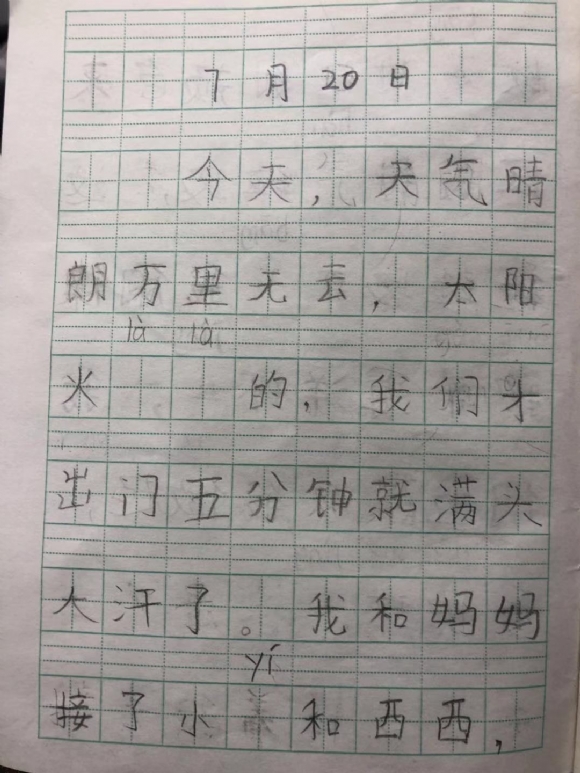 7月20日
今天，天气晴
朗万里无云，太阳
là là
火的，我们才
出门五分钟就满头
大汗了。我和妈妈
yí
接了小和西西，